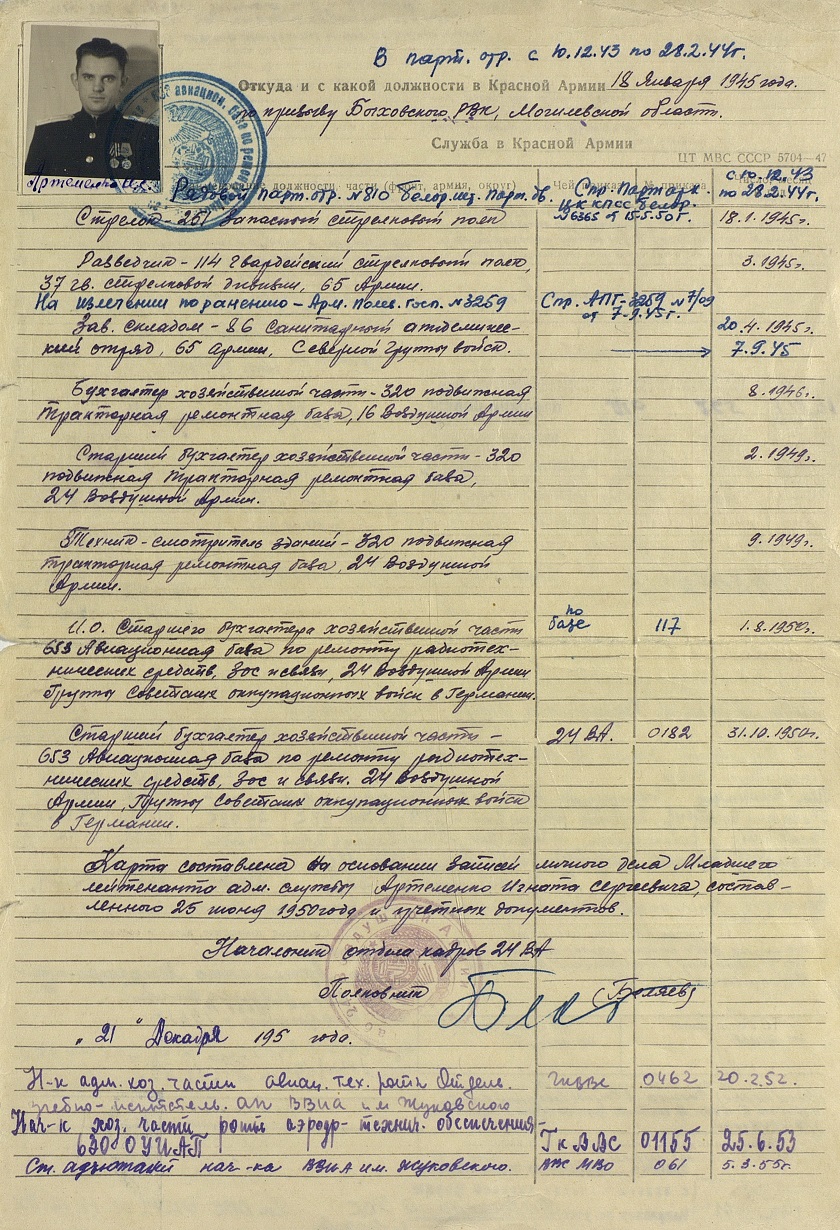 В парт. отр. с 10.12.43 по 28.2.44г.
Откуда и с какой должности в Красной Армии 18 Января 1945 года.
по призыву Быховского РВК, Могилевской области.
Служба в Красной Армии
ЦТ МВС СССР 5704—47
должности, части (фронт, армия, округ) Чей
Рядовой Парт. отр. №810 Белор. шт. Парт. дв. Спр. Партарх с 10.12.43
ЦК КПСС Белор. по 28.2.44г.
Стрелок - 251 Запасной стрелковый полк №6365 от 15.5.50г. 18.1.1945г.
Разведчик - 114 гвардейский стрелковый полк, 3.1945г.
37 гв. стрелковой дивизии, 65 Армии.
На излечении по ранению - Арм. полев. госп. №3259 Спр. АПГ-3259 №7/09
от 7-9.45г.
Зав. складом - 86 Санитарный эпидемиче- 20.4.1945г.
ский отряд, 65 Армии, Северной Группы войск. 7.9.45
Бухгалтер хозяйственной части - 320 подвижная 8.1946г.
тракторная ремонтная база, 16 Воздушной Армии
Старший бухгалтер хозяйственной части - 320 2.1949г.
подвижная тракторная ремонтная база,
24 Воздушной Армии.
Техник - смотритель зданий - 320 подвижная 9.1949г.
тракторная ремонтная база, 24 Воздушной
Армии.
И.О. Старшего бухгалтера хозяйственной части по базе 117 1.8.1950г.
653 Авиационная база по ремонту радиотех-
нических средств, Зос и связи, 24 Воздушной Армии
Группы Советских оккупационных войск в Германии.
Старший бухгалтер хозяйственной части - 24 ВА. 0182 31.10.1950г.
653 Авиационная база по ремонту радиотех-
нических средств, Зос и связи. 24 Воздушной
Армии, Группы Советских оккупационных войск
в Германии.
Карта составлена на основании записей личного дела Младшего
лейтенанта адм. службы Артеменко Игната Сергеевича, состав-
ленного 25 июня 1950 года и учетных документов.
Начальник отдела кадров 24 ВА
Полковник (Беляев)
"21" Декабря 195 года.
Н-к адм. хоз. части авиац. тех. роты Отдель. ГКВВС 0462 20.2.52.
учебно-испытатель. АП ВВИА им Жуковского
Нач-к хоз. части роты аэродр-технич. обеспечения - ГкВВС 01155 25.6.53
630 ОУИАП
Ст. адъютант нач-ка ВВИА им. Жуковского. ВВС МВО 061 5.3.55г.